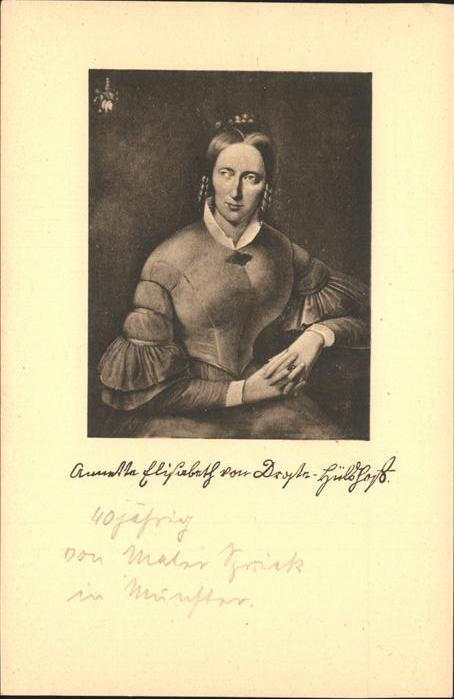 Annette Elisabeth von Droste-Hülshoff.
40jährig
von Maler Sprick
in Münster.